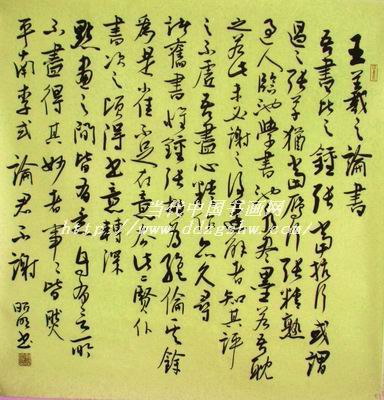 王羲之論書
吾書比之鍾張當抗行或謂
過之張草猶當雁行張精熟
過人臨池學書池水盡墨若吾耽
之若此未必謝之後達解者知其評
之不虛吾盡心精作亦久尋
諸舊書惟鍾張故爲絕倫其餘
爲是小佳不足在意去此二賢仆
書次之頃得書意轉深
點畫之間皆有意自有言所
不盡得其妙者事々皆然
平南李式論君不謝
书
当代中国书画网